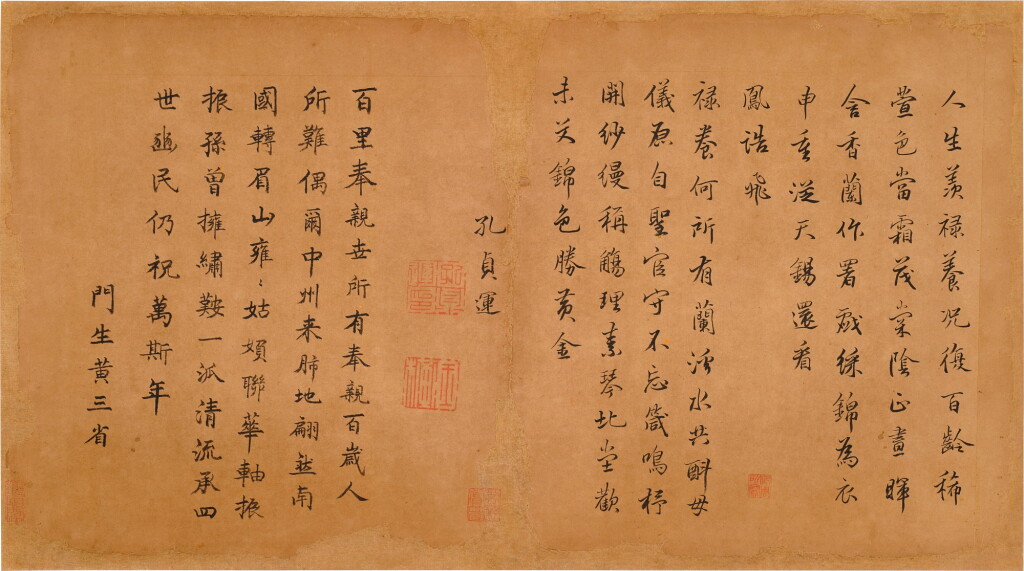 人生羨祿養況復百齡稀
萱色當霜茂棠陰正晝暉
含香蘭作署戲綵錦為衣
申重從天錫還看
鳳誥飛
祿養何所有蘭溪水共斟母
儀原自聖官守不忘箴鳴杼
開紗幔稱觴理素琴北堂歡
未艾錦色勝黃金
孔貞運
百里奉親世所有奉親百歲人
所難偶爾中州来肺地翩然南
國轉眉山雍雍姑媍聯華軸振
振孫曾擁繡鞍一派清流承四
世 民仍祝萬斯年
門生黃三省